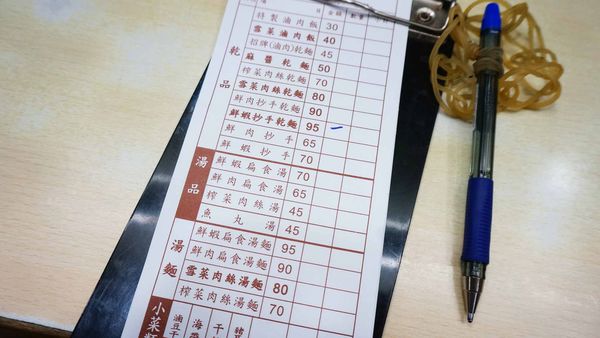 特製滷肉飯 30
雪菜滷肉飯 40
招牌(滷肉)乾麵 45
麻醬乾麵 50
榨菜肉絲乾麵 70
雪菜肉絲乾麵 80
鮮肉抄手乾麵 90
鮮蝦抄手乾麵 95
鮮肉抄手 65
鮮蝦抄手 70
乾品
鮮蝦扁食湯 70
鮮肉扁食湯 65
榨菜肉絲湯 45
魚丸湯 45
湯品
鮮蝦扁食湯麵 95
鮮肉扁食湯麵 90
雪菜肉絲湯麵 80
榨菜肉絲湯麵 70
湯麵
小菜類
滷豆干
海帶